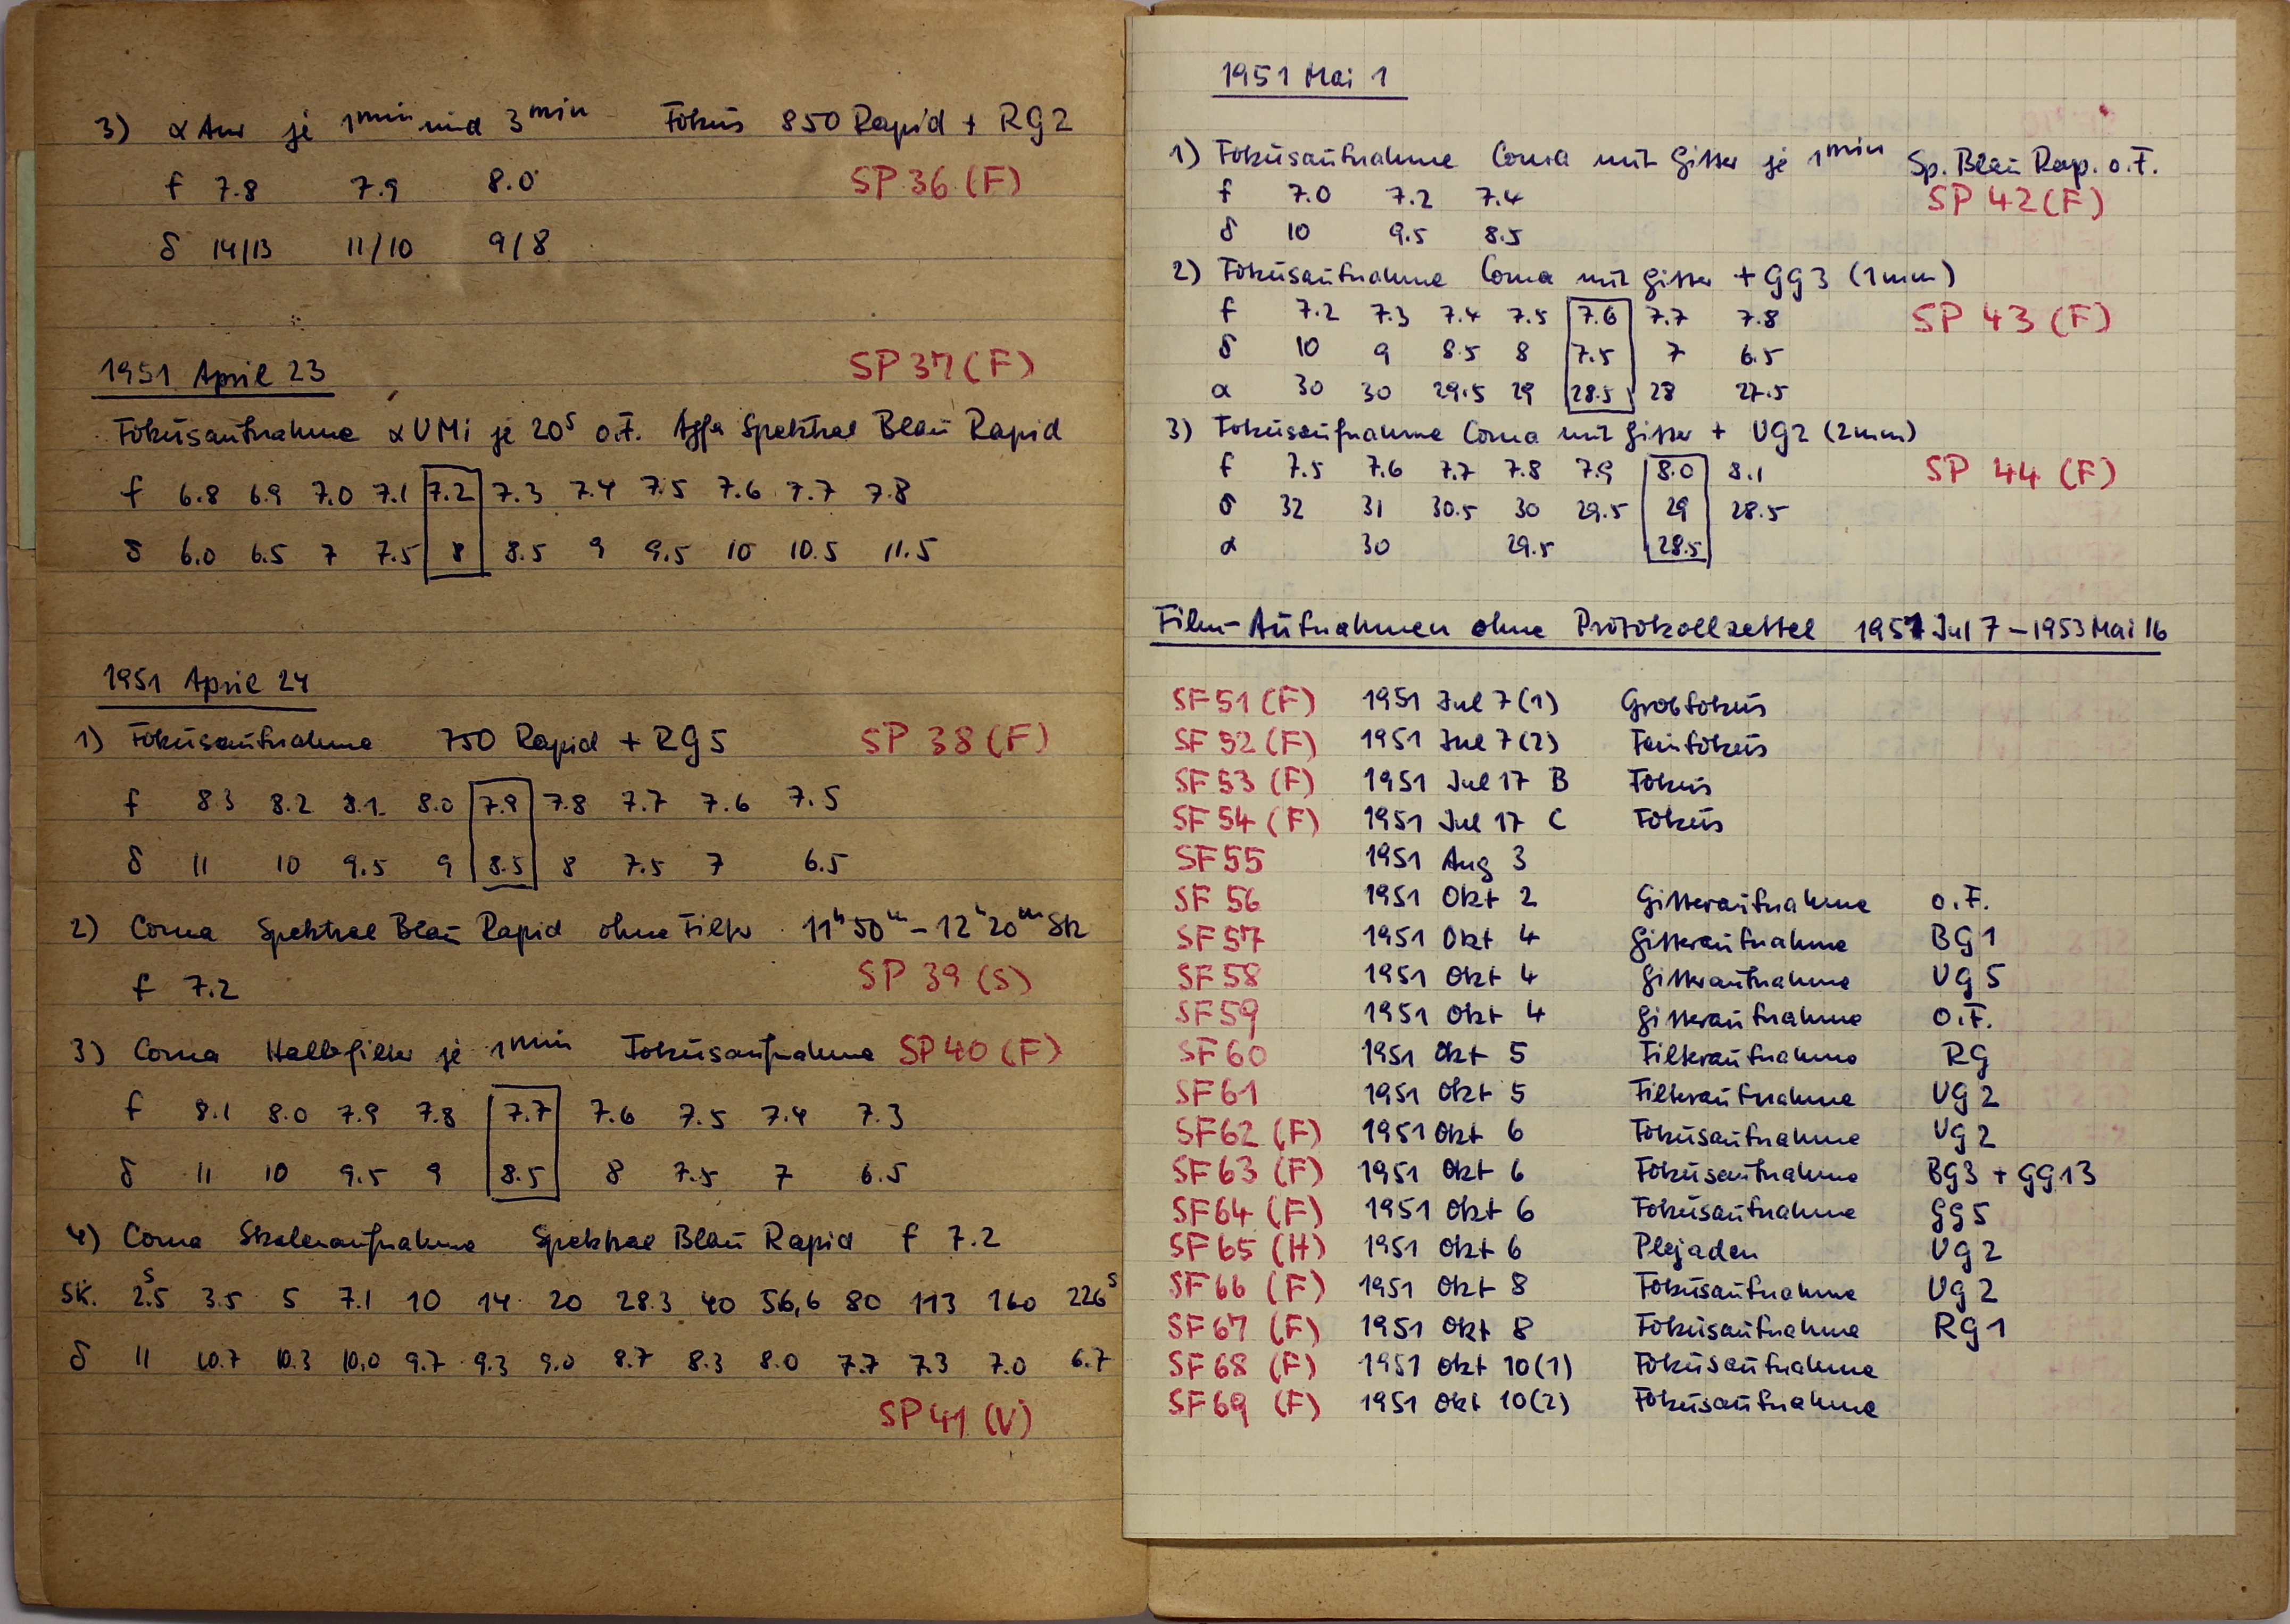 3) α Aur je 1min und 3min Fokus 850 Rapid + RG2
f 7.8 7.9 8.0 SP 36 (F)
δ 14/13 11/10 9/8
1951 April 23 SP 37 (F)
Fokusaufnahme α UMi je 20s o.F. Agfa Spektral Blau Rapid
f 6.8 6.9 7.0 7.1 7.2 7.3 7.4 7.5 7.6 7.7 7.8
δ 6.0 6.5 7 7.5 8 8.5 9 9.5 10 10.5 11.5
1951 April 24
1) Fokusaufnahme 750 Rapid + RG5 SP 38 (F)
f 8.3 8.2 8.1 8.0 7.9 7.8 7.7 7.6 7.5
δ 11 10 9.5 9 8.5 8 7.5 7 6.5
2) Coma Spektral Blau Rapid ohne Filter 11h50m – 12h20m Stz
f 7.2 SP 39 (S)
3) Coma Halbfilter je 1min Fokusaufnahme SP 40 (F)
f 8.1 8.0 7.9 7.8 7.7 7.6 7.5 7.4 7.3
δ 11 10 9.5 9 8.5 8 7.5 7 6.5
4) Coma Skalenaufnahme Spektral Blau Rapid f 7.2
Sk. 2.5s 3.5 5 7.1 10 14 20 28.3 40 56,6 80 113 160 226s
δ 11 10.7 10.3 10,0 9.7 9.3 9.0 8.7 8.3 8.0 7.7 7.3 7.0 6.7
SP 41 (V)
1951 Mai 1
1) Fokusaufnahme Coma mit Gitter je 1min Sp. Blau Rap. o.F.
f 7.0 7.2 7.4 SP 42 (F)
δ 10 9.5 8.5
2) Fokusaufnahme Coma mit Gitter + GG3 (1mm)
f 7.2 7.3 7.4 7.5 7.6 7.7 7.8 SP 43 (F)
δ 10 9 8.5 8 7.5 7 6.5
α 30 30 29.5 29 28.5 28 27.5
3) Fokusaufnahme Coma mit Gitter + UG2 (2mm)
f 7.5 7.6 7.7 7.8 7.9 8.0 8.1 SP 44 (F)
δ 32 31 30.5 30 29.5 29 28.5
α 30 29.5 28.5
Film-Aufnahmen ohne Protokollzettel 1951 Jul 7 – 1953 Mai 16
SF 51 (F) 1951 Jul 7 (1) Grobfokus
SF 52 (F) 1951 Jul 7 (2) Feinfokus
SF 53 (F) 1951 Jul 17 B Fokus
SF 54 (F) 1951 Jul 17 C Fokus
SF 55 1951 Aug 3
SF 56 1951 Okt 2 Gitteraufnahme o.F.
SF 57 1951 Okt 4 Gitteraufnahme BG1
SF 58 1951 Okt 4 Gitteraufnahme UG5
SF 59 1951 Okt 4 Gitteraufnahme o.F.
SF 60 1951 Okt 5 Filteraufnahme RG
SF 61 1951 Okt 5 Filteraufnahme UG2
SF 62 (F) 1951 Okt 6 Fokusaufnahme UG2
SF 63 (F) 1951 Okt 6 Fokusaufnahme BG3 + GG13
SF 64 (F) 1951 Okt 6 Fokusaufnahme GG5
SF 65 (H) 1951 Okt 6 Plejaden UG2
SF 66 (F) 1951 Okt 8 Fokusaufnahme UG2
SF 67 (F) 1951 Okt 8 Fokusaufnahme RG1
SF 68 (F) 1951 Okt 10 (1) Fokusaufnahme
SF 69 (F) 1951 Okt 10 (2) Fokusaufnahme